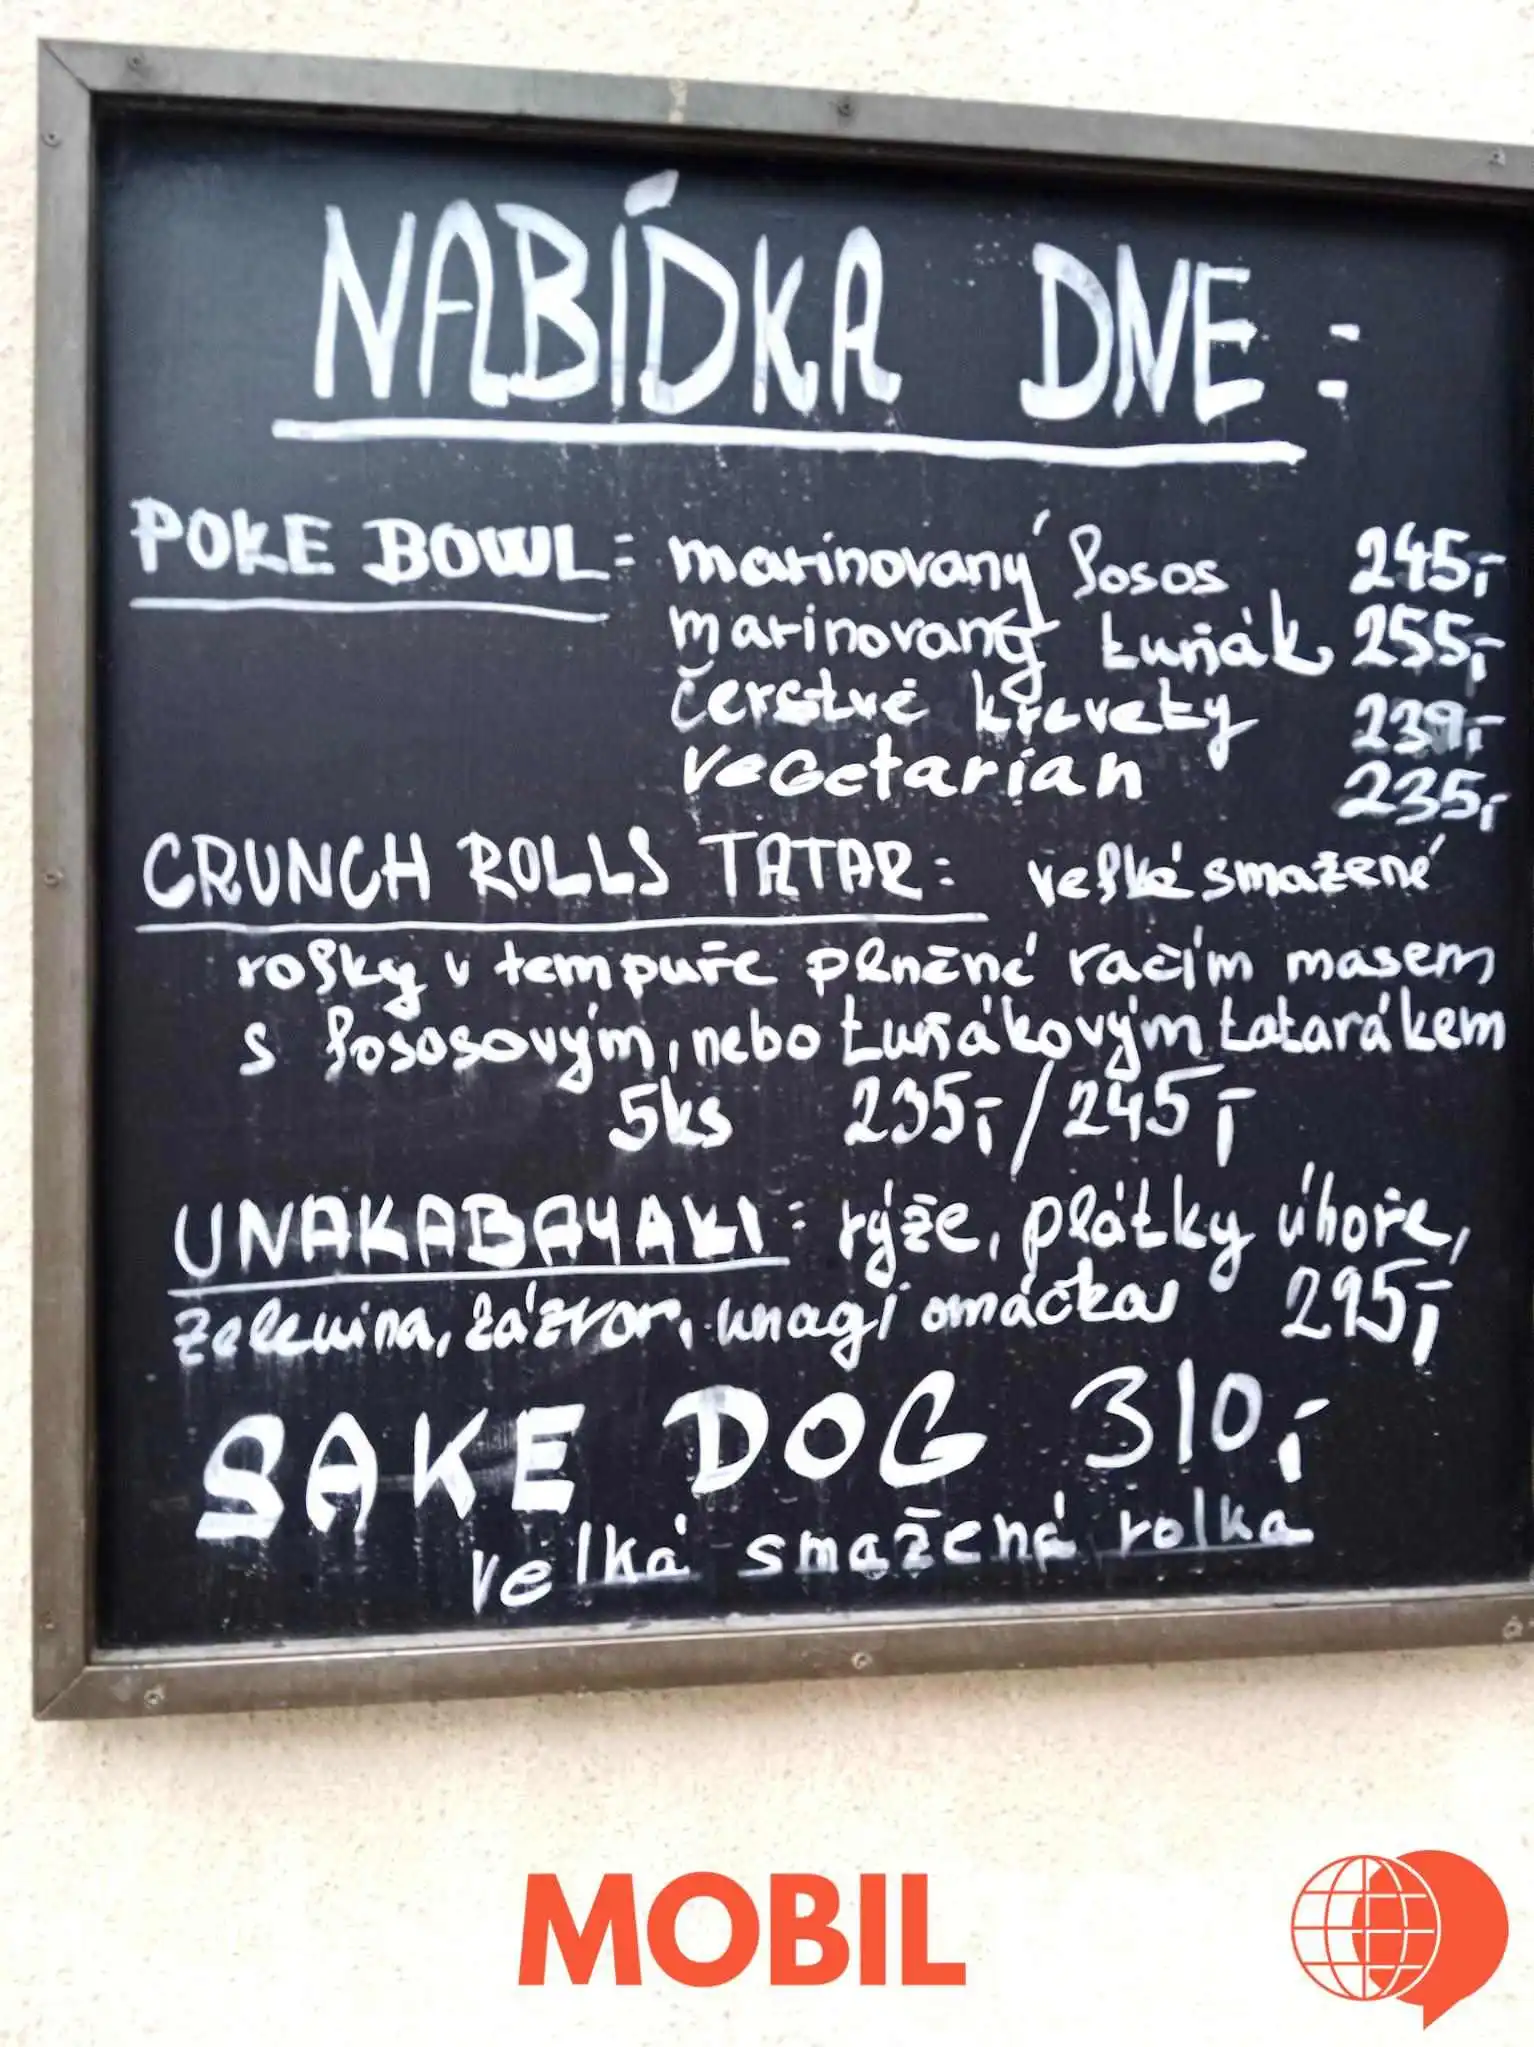 NABÍDKA DNE:
POKE BOWL: marinovaný losos 245,-
marinovaný tuňák 255,-
čerstvé krevety 239,-
vegetarian 235,-
CRUNCH ROLLS TATAR: velké smažené
rolky v tempuře plněné račím masem
s lososovým, nebo tuňákovým tatarákem
5ks 235,-/245,-
UNAKABAYAKI: rýže, plátky úhoře,
zelenina, zázvor, unagi omáčka 295,-
SAKE DOG 310,-
velká smažená rolka
MOBIL